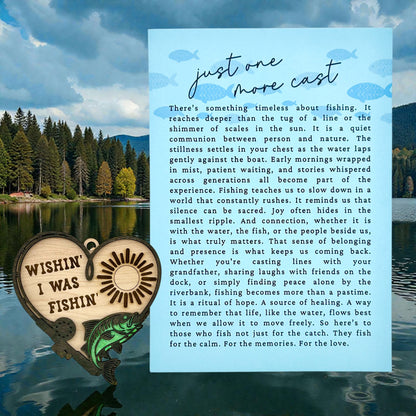 just one
more cast
There's something timeless about fishing. It
reaches deeper than the tug of a line or the
shimmer of scales in the sun. It is a quiet
communion between person and nature. The
stillness settles in your chest as the water laps
gently against the boat. Early mornings wrapped
in mist, patient waiting, and stories whispered
across generations all become part of the
experience. Fishing teaches us to slow down in a
world that constantly rushes. It reminds us that
silence can be sacred. Joy often hides in the
smallest ripple. And connection, whether it is
with the water, the fish, or the people beside us,
is what truly matters. That sense of belonging
and presence is what keeps us coming back.
Whether you're casting lines with your
grandfather, sharing laughs with friends on the
dock, or simply finding peace alone by the
riverbank, fishing becomes more than a pastime.
It is a ritual of hope. A source of healing. A way
to remember that life, like the water, flows best
when we allow it to move freely. So here's to
those who fish not just for the catch. They fish
for the calm. For the memories. For the love.
WISHIN'
I WAS
FISHIN'